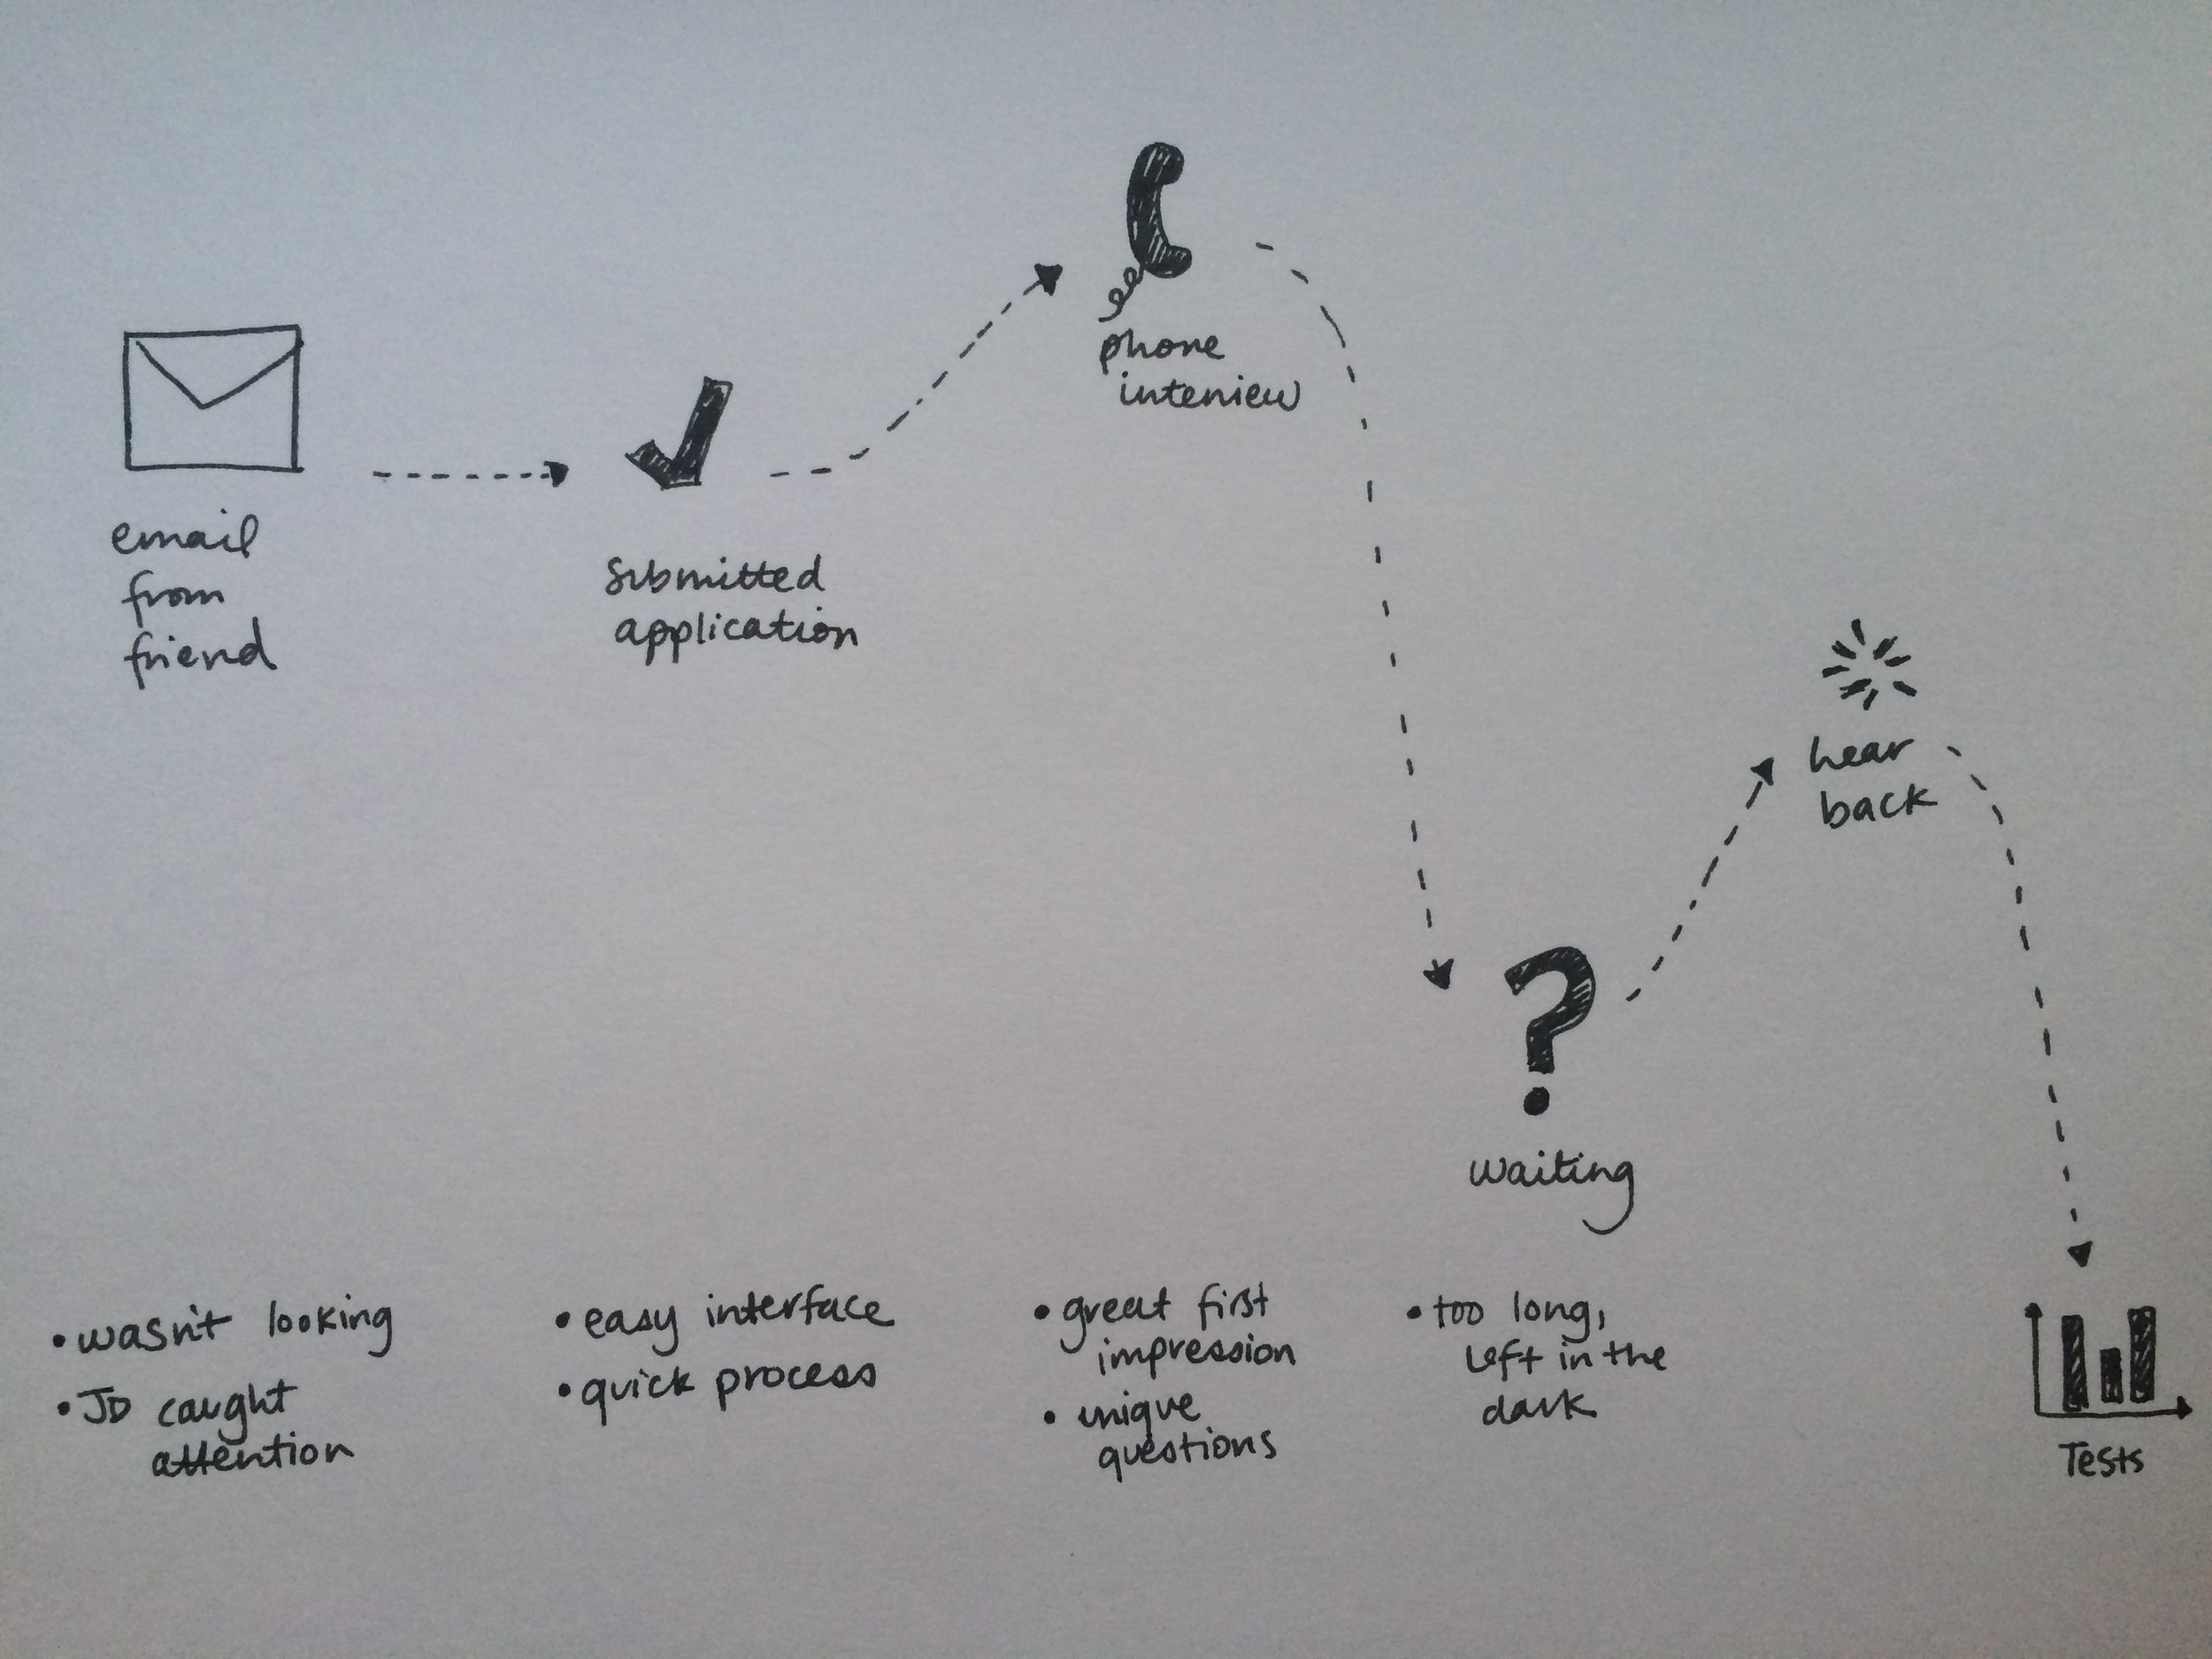 email
from
friend
submitted
application
phone
interview
hear
back
waiting
• wasn't looking
• JD caught
attention
• easy interface
• quick process
• great first
impression
• unique
questions
• too long,
left in the
dark
Tests